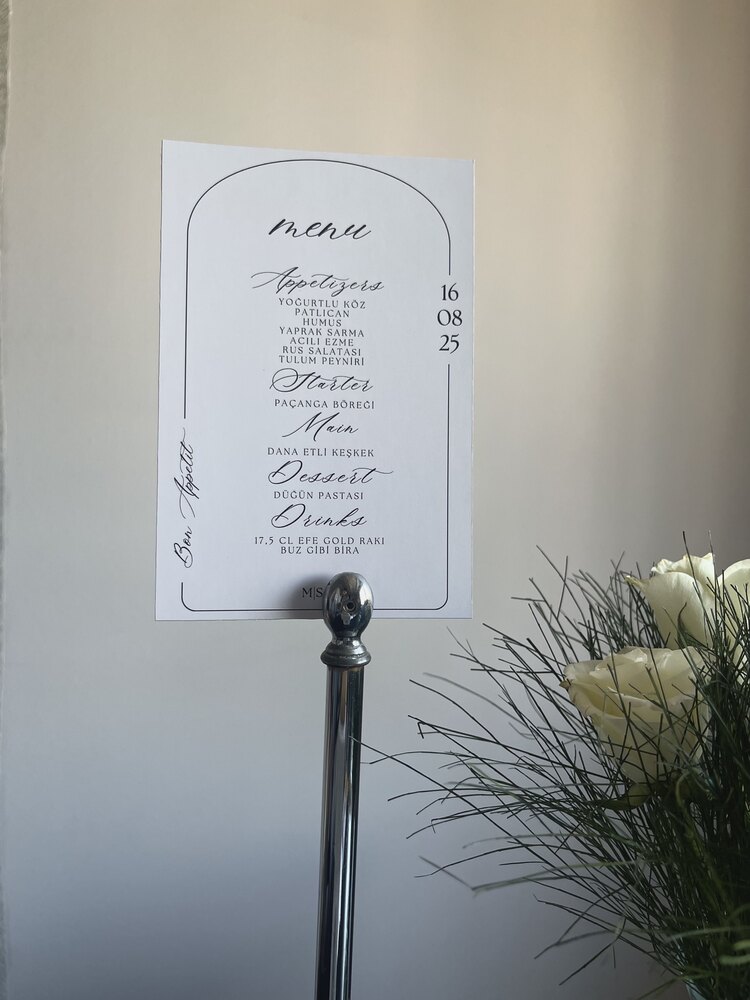 menu
Appetizers
YOĞURTLU KÖZ
PATLICAN
HUMUS
YAPRAK SARMA
ACILI EZME
RUS SALATASI
TULUM PEYNİRİ
Starter
PAÇANGA BÖREĞİ
Main
DANA ETLİ KEŞKEK
Dessert
DÜĞÜN PASTASI
Drinks
17,5 CL EFE GOLD RAKI
BUZ GİBİ BİRA
M|S
16
08
25
Bon Appetit